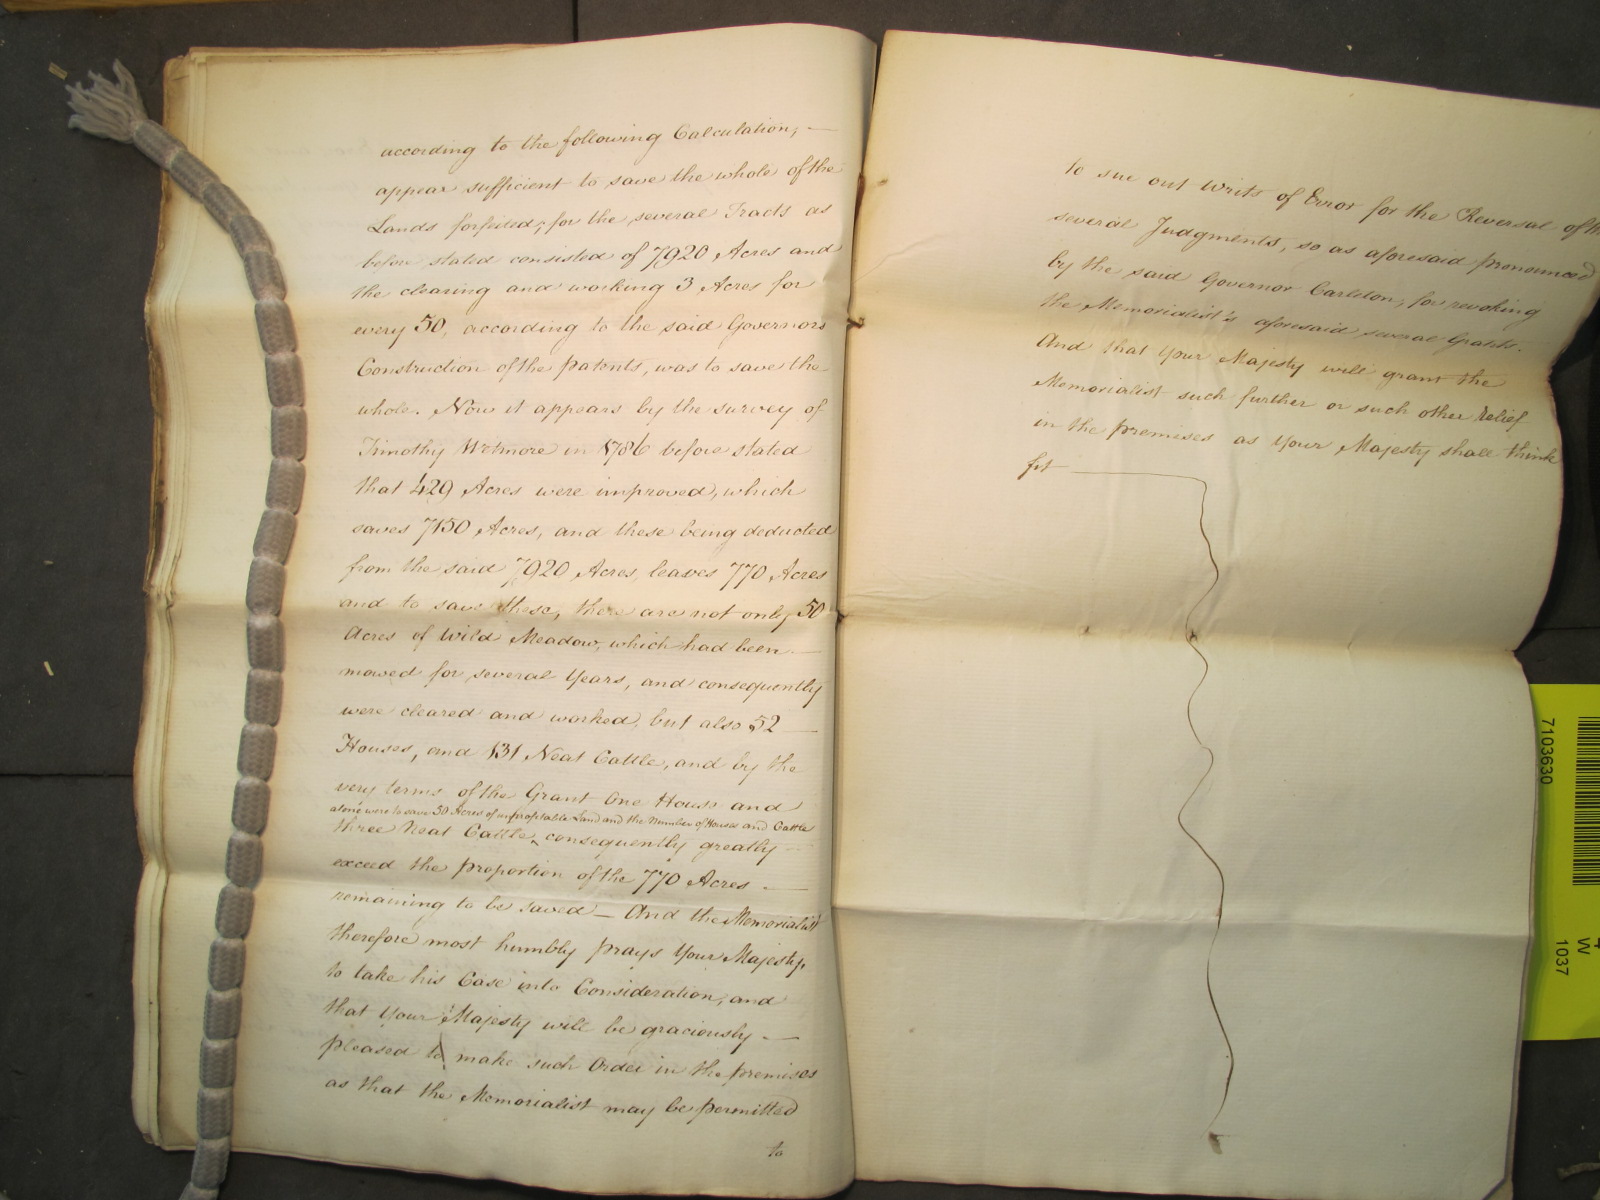 according to the following Calculation, —
appear sufficient to save the whole of the
Lands forfeited, for the several Tracts as
before stated consisted of 7920 Acres and
the clearing and working 3 Acres for
every 50, according to the said Governors
Construction of the patents, was to save the
whole. Now it appears by the survey of
Timothy Wetmore in 1786 before stated
that 429 Acres were improved, which
saves 7150 Acres, and these being deducted
from the said 7920 Acres, leaves 770 Acres
and to save these, there are not only 50
Acres of Wild Meadow, which had been —
mowed for several Years, and consequently
were cleared and worked, but also 52 —
Houses, and 131 Neat Cattle, and by the
very terms of the Grant One House and
alone were to save 50 Acres of unprofitable Land and the Number of Houses and Cattle
three Neat Cattle ‸ consequently greatly
exceed the proportion of the 770 Acres —
remaining to be saved — And the Memorialist
therefore most humbly prays Your Majesty,
to take his Case into Consideration, and
that Your Majesty will be graciously —
pleased to make such Order in the premises
as that the Memorialist may be permitted
to
to sue out Writs of Error for the Reversal of the
several Judgments, so as aforesaid pronounced
by the said Governor Carleton, for revoking
the Memorialist's aforesaid several Grants.
And that Your Majesty will grant the
Memorialist such further or such other relief
in the premises as Your Majesty shall think
fit —
7103630
W
1037